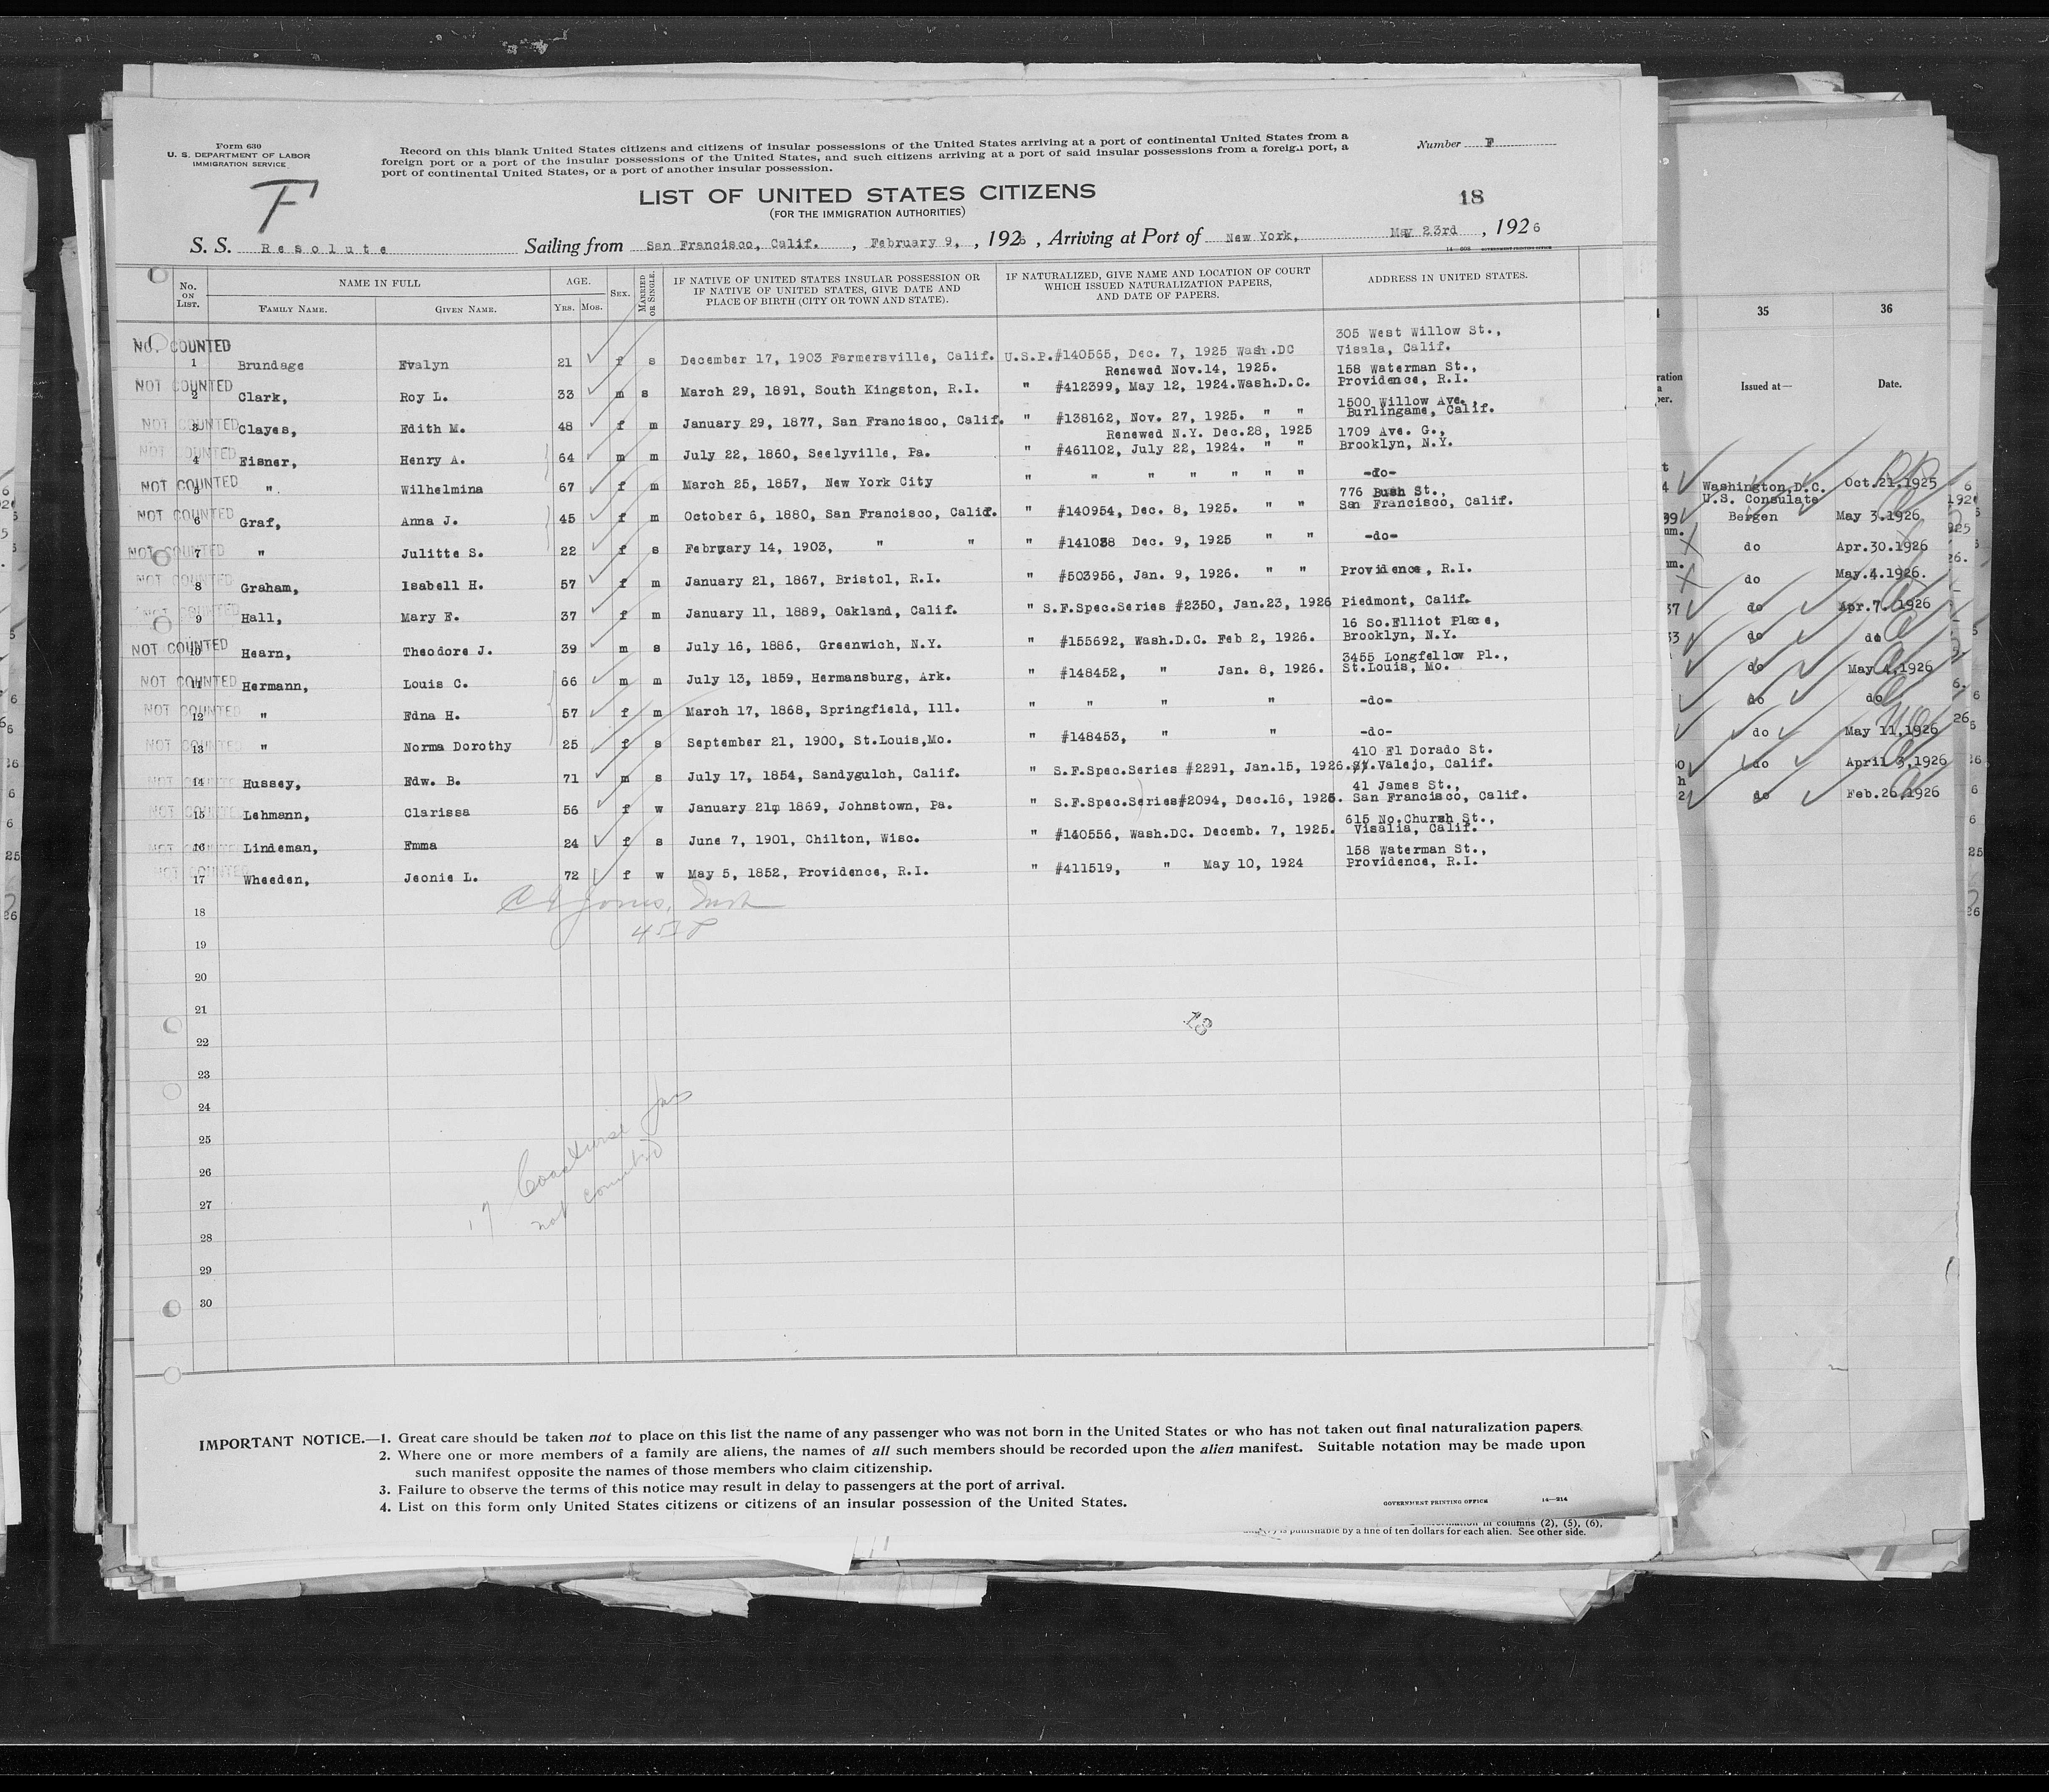 Form 630
U. S. DEPARTMENT OF LABOR
IMMIGRATION SERVICE
Record on this blank United States citizens and citizens of insular possessions of the United States arriving at a port of continental United States from a
foreign port or a port of the insular possessions of the United States, and such citizens arriving at a port of said insular possessions from a foreign port, a
port of continental United States, or a port of another insular possession.
Number F
F
LIST OF UNITED STATES CITIZENS
(FOR THE IMMIGRATION AUTHORITIES)
18
S. S. Resolute Sailing from San Francisco, Calif. , February 9, , 1926 , Arriving at Port of New York, May 23rd , 1926
No. ON LIST. NAME IN FULL AGE. SEX. MARRIED OR SINGLE. IF NATIVE OF UNITED STATES INSULAR POSSESSION OR IF NATIVE OF UNITED STATES, GIVE DATE AND PLACE OF BIRTH (CITY OR TOWN AND STATE). IF NATURALIZED, GIVE NAME AND LOCATION OF COURT WHICH ISSUED NATURALIZATION PAPERS, AND DATE OF PAPERS. ADDRESS IN UNITED STATES.
FAMILY NAME. GIVEN NAME. YRS. MOS.
305 West Willow St.,
NOT COUNTED 1 Brundage Evalyn 21 f s December 17, 1903 Farmersville, Calif. U.S.P.#140565, Dec. 7, 1925 Wash.DC Visala, Calif.
Renewed Nov.14, 1925. 158 Waterman St.,
NOT COUNTED 2 Clark, Roy L. 33 m s March 29, 1891, South Kingston, R.I. " #412399, May 12, 1924.Wash.D.C. Providence, R.I.
1500 Willow Ave.,
NOT COUNTED 3 Clayes, Edith M. 48 f m January 29, 1877, San Francisco, Calif. " #138162, Nov. 27, 1925. " " Burlingame, Calif.
Renewed N.Y. Dec.28, 1925 1709 Ave. G.,
NOT COUNTED 4 Eisner, Henry A. 64 m m July 22, 1860, Seelyville, Pa. " #461102, July 22, 1924. " " Brooklyn, N.Y.
NOT COUNTED 5 " Wilhelmina 67 f m March 25, 1857, New York City " " " " " " " -do-
776 Bush St.,
NOT COUNTED 6 Graf, Anna J. 45 f m October 6, 1880, San Francisco, Calif. " #140954, Dec. 8, 1925. " " San Francisco, Calif.
NOT COUNTED 7 " Julitte S. 22 f s February 14, 1903, " " " #141038 Dec. 9, 1925 " " -do-
NOT COUNTED 8 Graham, Isabell H. 57 f m January 21, 1867, Bristol, R.I. " #503956, Jan. 9, 1926. " " Providence, R.I.
NOT COUNTED 9 Hall, Mary E. 37 f m January 11, 1889, Oakland, Calif. " S.F.Spec.Series #2350, Jan.23, 1926 Piedmont, Calif.
16 So.Elliot Place,
NOT COUNTED 10 Hearn, Theodore J. 39 m s July 16, 1886, Greenwich, N.Y. " #155692, Wash.D.C. Feb 2, 1926. Brooklyn, N.Y.
3455 Longfellow Pl.,
NOT COUNTED 11 Hermann, Louis C. 66 m m July 13, 1859, Hermansburg, Ark. " #148452, " Jan. 8, 1926. St.Louis, Mo.
NOT COUNTED 12 " Edna H. 57 f m March 17, 1868, Springfield, Ill. " " " " -do-
NOT COUNTED 13 " Norma Dorothy 25 f s September 21, 1900, St.Louis,Mo. " #148453, " " -do-
410 El Dorado St.
NOT COUNTED 14 Hussey, Edw. B. 71 m s July 17, 1854, Sandygulch, Calif. " S.F.Spec.Series #2291, Jan.15, 1926. Valejo, Calif.
41 James St.,
NOT COUNTED 15 Lehmann, Clarissa 56 f w January 21, 1869, Johnstown, Pa. " S.F.Spec.Series#2094, Dec.16, 1925. San Francisco, Calif.
615 No.Church St.,
NOT COUNTED 16 Lindeman, Emma 24 f s June 7, 1901, Chilton, Wisc. " #140556, Wash.DC. Decemb. 7, 1925. Visalia, Calif.
158 Waterman St.,
NOT COUNTED 17 Wheeden, Jeonie L. 72 f w May 5, 1852, Providence, R.I. " #411519, " May 10, 1924 Providence, R.I.
18
19
20
21
22
23
24
25
26
27
28
29
30
Jones,
13
17 Coastwise
not counted
IMPORTANT NOTICE.—1. Great care should be taken not to place on this list the name of any passenger who was not born in the United States or who has not taken out final naturalization papers.
2. Where one or more members of a family are aliens, the names of all such members should be recorded upon the alien manifest. Suitable notation may be made upon
such manifest opposite the names of those members who claim citizenship.
3. Failure to observe the terms of this notice may result in delay to passengers at the port of arrival.
4. List on this form only United States citizens or citizens of an insular possession of the United States.
GOVERNMENT PRINTING OFFICE 14—214
in columns (2), (5), (6),
is punishable by a fine of ten dollars for each alien. See other side.
35 36
Issued at— Date.
Washington,D.C. Oct.21,1925
U.S. Consulate
Bergen May 3,1926
do Apr.30.1926
do May.4.1926.
do Apr.7.1926
do do
do May 4,1926
do do
do May 11,1926
do April 3,1926
do Feb.26,1926